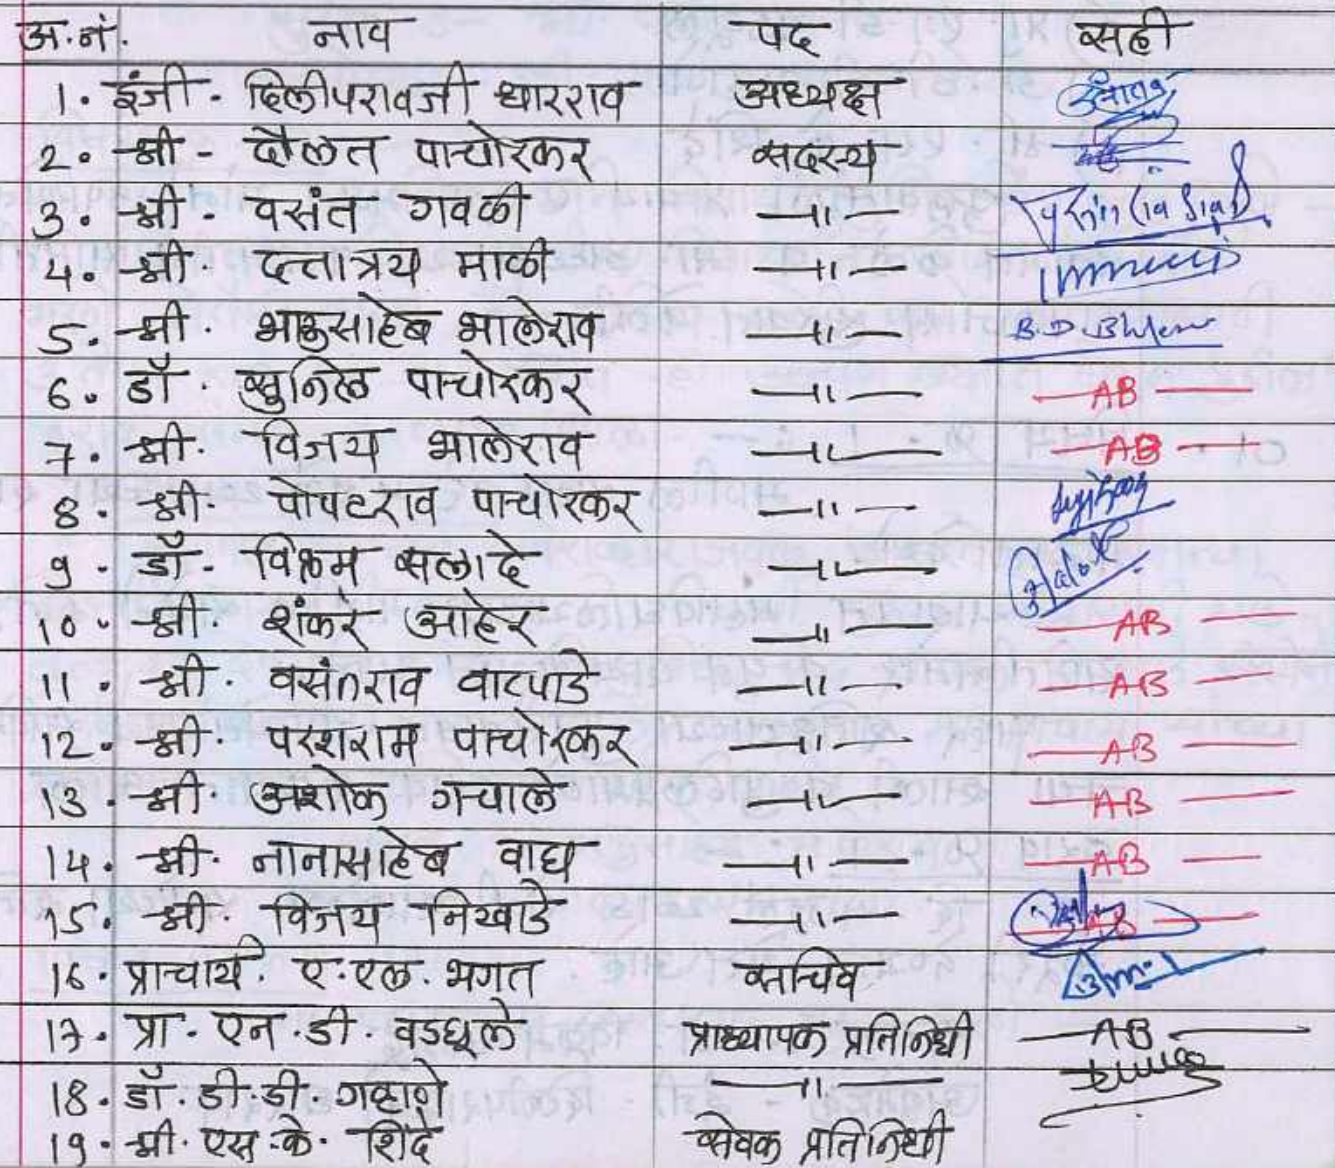 अ.नं. नाव पद सही
1. इंजी. दिलीपरावजी धारराव अध्यक्ष
2. श्री - दौलत पाचोरकर सदस्य
3. श्री. वसंत गवळी —॥—
4. श्री. दत्तात्रय माळी —॥—
5. श्री. भाऊसाहेब भालेराव —॥— B.D. Bhlerao
6. डॉ. सुनिल पाचोरकर —॥— — AB —
7. श्री. विजय भालेराव —॥— — AB —
8. श्री. पोपटराव पाचोरकर —॥—
9. डॉ. विक्रम सलादे —॥—
10. श्री. शंकर आहेर —॥— — AB —
11. श्री. वसंतराव वाटपाडे —॥— — AB —
12. श्री. परशराम पाचोरकर —॥— — AB —
13. श्री. अशोक गचाले —॥— — AB —
14. श्री. नानासाहेब वाघ —॥— — AB —
15. श्री. विजय निखाडे —॥— AB —
16. प्राचार्य. ए.एल. भगत सचिव
17. प्रा. एन.डी. वडघूले प्राध्यापक प्रतिनिधी — AB —
18. डॉ. डी.डी. गव्हाणे —॥—
19. श्री. एस.के. शिंदे सेवक प्रतिनिधी